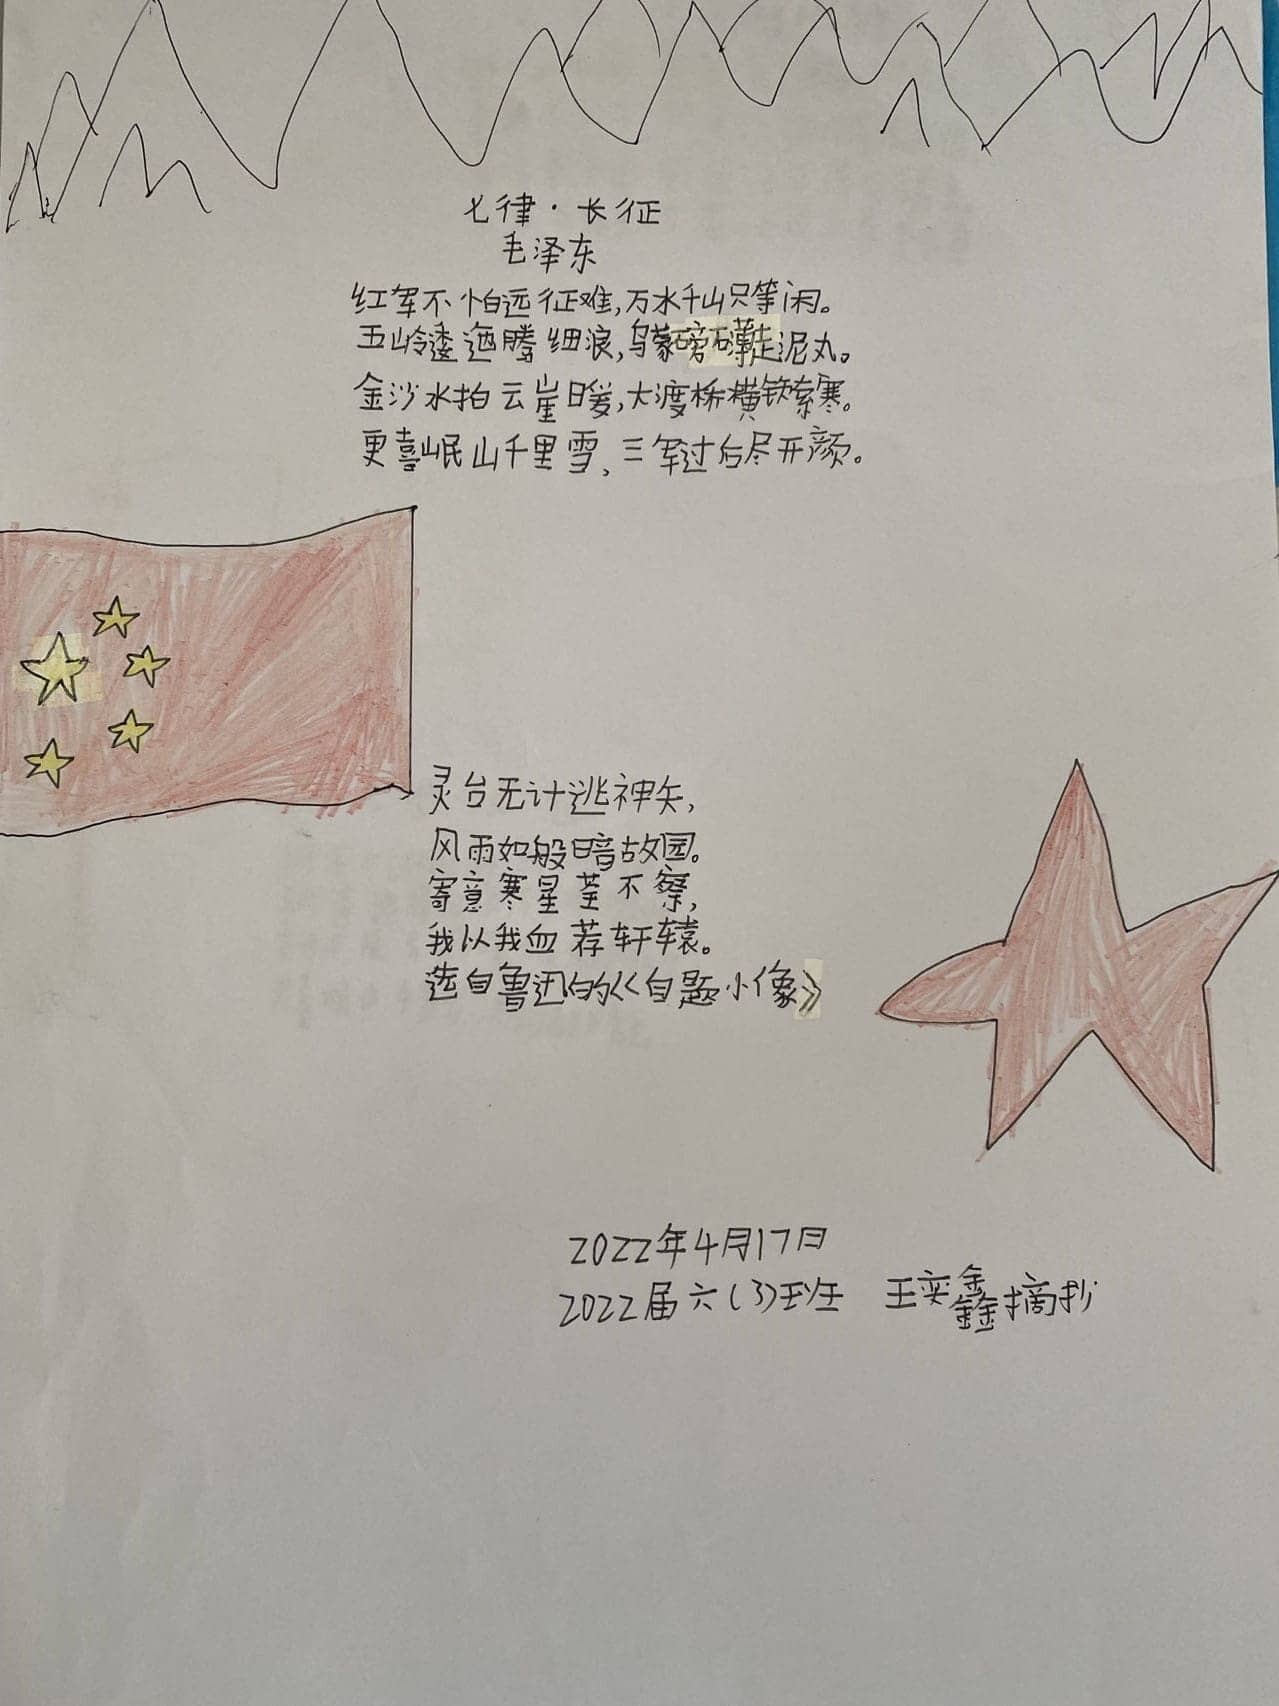 七律·长征
毛泽东
红军不怕远征难,万水千山只等闲。
五岭逶迤腾细浪,乌蒙磅礴走泥丸。
金沙水拍云崖暖,大渡桥横铁索寒。
更喜岷山千里雪,三军过后尽开颜。
灵台无计逃神矢,
风雨如般暗故园。
寄意寒星荃不察,
我以我血荐轩辕。
选自鲁迅的《自题小像》
2022年4月17日
2022届六(3)班 王奕鑫摘抄